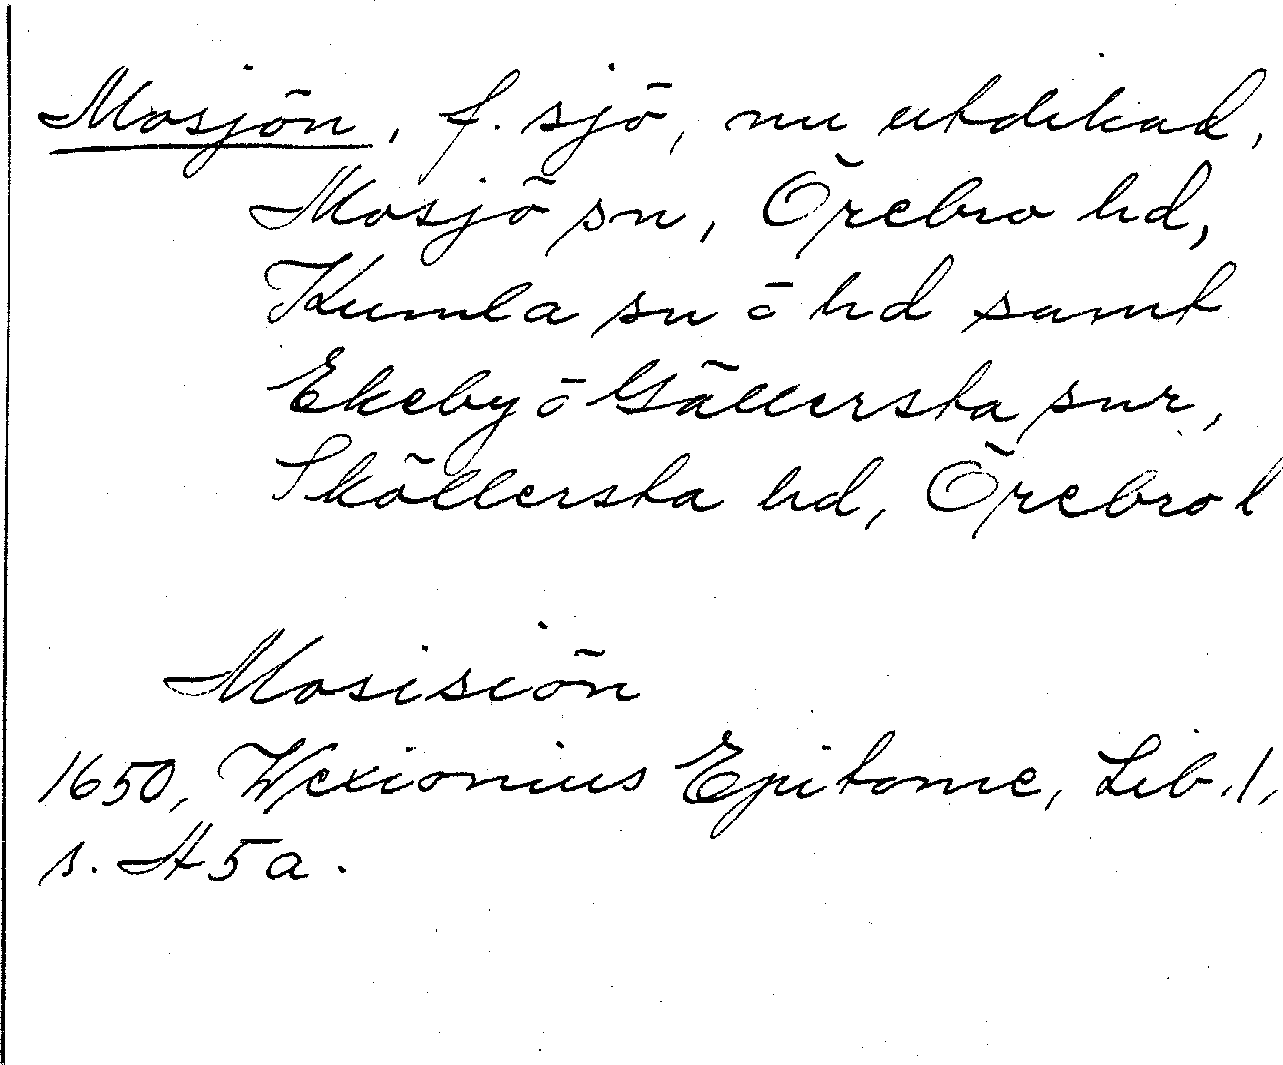 Mosjön, f. sjö, nu utdikad,
Mosjö sn, Örebro hd,
Kumla sn o hd samt
Ekeby o Gällersta snr,
Sköllersta hd, Örebro l
Mosisiön
1650, Wexionius Epitome, Lib. 1,
s. H5a.